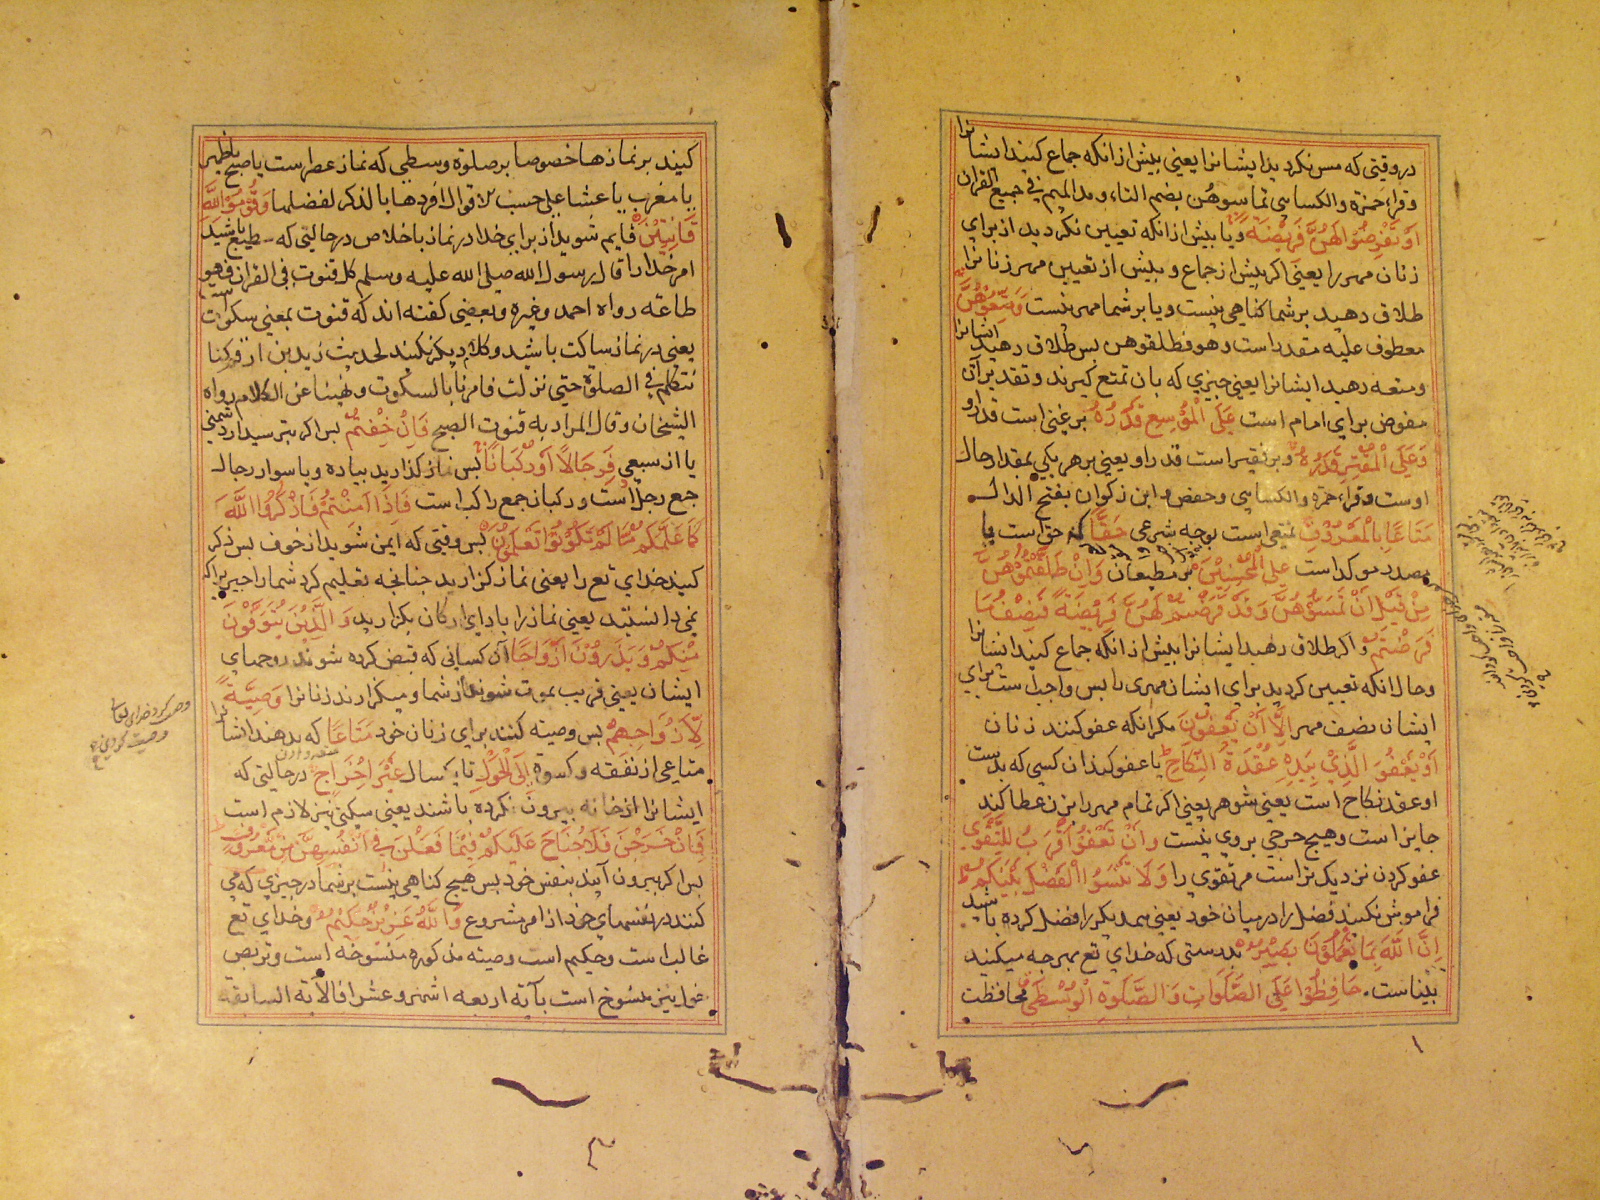 در وقتی که مس نکردید ایشانرا یعنی پیش از انکه جماع کنید ایشانرا
و قراء حمزه والکسائی تماسوهن بضم التاء ومد المیم فی جمیع القران
أَوْ تَفْرِضُوا لَهُنَّ فَرِیضَةً ویا پیش از انکه تعیین نکردید از برای
زنان مهر را یعنی اکر پیش از جماع و پیش از تعیین مهر زنانرا
طلاق دهید بر شما کناهی نیست ویا بر شما مهر نیست وَمَتِّعُوهُنَّ
معطوف علیه مقدر است وهو فطلقوهن پس طلاق دهید ایشانرا
ومتعه دهید ایشانرا یعنی چیزی که بان تمتع کیرند وتقدیر آن
مفوض برای امام است عَلَی الْمُوسِعِ قَدَرُهُ بر غنی است قدر او
وَعَلَی الْمُقْتِرِ قَدَرُهُ وبر فقیر است قدر او یعنی بر هر یکی بمقدار حال
اوست وقراء حمزه والکسایی وحفص وابن ذکوان بفتح الدال
مَتَاعًا بِالْمَعْرُوفِ تمتعی است بوجه شرعی حَقًّا که حق است یا
مصدر موکد است عَلَی الْمُحْسِنِینَ بر مطیعان وَإِنْ طَلَّقْتُمُوهُنَّ
مِنْ قَبْلِ أَنْ تَمَسُّوهُنَّ وَقَدْ فَرَضْتُمْ لَهُنَّ فَرِیضَةً فَنِصْفُ مَا
فَرَضْتُمْ واکر طلاق دهید ایشانرا پیش از انکه جماع کنید ایشانرا
وحال انکه تعیین کردید برای ایشان مهری را پس واجب است برای
ایشان نصف مهر إِلَّا أَنْ یَعْفُونَ مکر انکه عفو کنند زنان
أَوْ یَعْفُوَ الَّذِی بِیَدِهِ عُقْدَةُ النِّکَاحِ یا عفو کند ان کسی که بدست
او عقد نکاح است یعنی شوهر یعنی اکر تمام مهر را بزن عطا کند
جایز است وهیچ حرجی بروی نیست وَأَنْ تَعْفُوا أَقْرَبُ لِلتَّقْوَی
عفو کردن نزدیک تر است مر تقوی را وَلَا تَنْسَوُا الْفَضْلَ بَیْنَکُمْ
فراموش نکنید فضل را در میان خود یعنی بهمدیکر را فضل کرده باشید
إِنَّ اللَّهَ بِمَا تَعْمَلُونَ بَصِیرٌ بدرستی که خدای تع بهرچه میکنید
بیناست حَافِظُوا عَلَی الصَّلَوَاتِ وَالصَّلَوةِ الْوُسْطَی محافظت
کنید بر نمازها خصوصا بر صلوة وسطی که نماز عصر است یا صبح یا ظهر
یا مغرب یا عشا علی حسب الاقوال افردها بالذکر لفضلها وَقُومُوا لِلَّهِ
قَانِتِینَ قایم شوید از برای خدا در نماز باخلاص در حالتی که مطیع باشید
امر خدا را قال رسول الله صلی الله علیه وسلم کل قنوت فی القران فهو
طاعة رواه احمد وغیره وبعضی کفته اند که قنوت بمعنی سکوت است
یعنی در نماز ساکت باشید وکلام دیکر نکنید لحدیث زید بن ارقم کنا
نتکلم فی الصلوة حتی نزلت فامرنا بالسکوت ونهینا عن الکلام رواه
الشیخان وقال المراد به قنوت الصبح فَإِنْ خِفْتُمْ پس اکر بترسید از دشمنی
یا از سبعی فَرِجَالًا أَوْ رُکْبَانًا پس نماز کذارید پیاده ویا سوار رجال
جمع رجل است ورکبان جمع راکب است فَإِذَا أَمِنْتُمْ فَاذْکُرُوا اللَّهَ
کَمَا عَلَّمَکُمْ مَا لَمْ تَکُونُوا تَعْلَمُونَ پس وقتی که ایمن شوید از خوف پس ذکر
کنید خدای تع را یعنی نماز کزارید چنانچه تعلیم کرد شما را چیزی که
نمی دانستید یعنی نماز را بادای ارکان بکزارید وَالَّذِینَ یُتَوَفَّوْنَ
مِنْکُمْ وَیَذَرُونَ أَزْوَاجًا آن کسانی که قبض کرده شوند روحهای
ایشان یعنی قریب بموت شوند از شما ومیکزارند زنانرا وَصِیَّةً
لِأَزْوَاجِهِمْ پس وصیة کنند برای زنان خود مَتَاعًا که بدهند ایشانرا
متاعی از نفقه وکسوة إِلَی الْحَوْلِ تا یکسال غَیْرَ إِخْرَاجٍ در حالتی که
ایشانرا از خانه بیرون نکرده باشند یعنی سکنی نیز لازم است
فَإِنْ خَرَجْنَ فَلَا جُنَاحَ عَلَیْکُمْ فِیمَا فَعَلْنَ فِی أَنْفُسِهِنَّ مِنْ مَعْرُوفٍ
پس اکر بیرون آیند بنفس خود پس هیچ کناهی نیست بر شما در چیزی که می
کنند در نفسهای خود از امر مشروع وَاللَّهُ عَزِیزٌ حَکِیمٌ وخدای تع
غالب است وحکیم است وصیته مذکوره منسوخه است وتربص
حول نیز منسوخ است بآیة اربعة اشهر وعشرا فالآیة السابقة